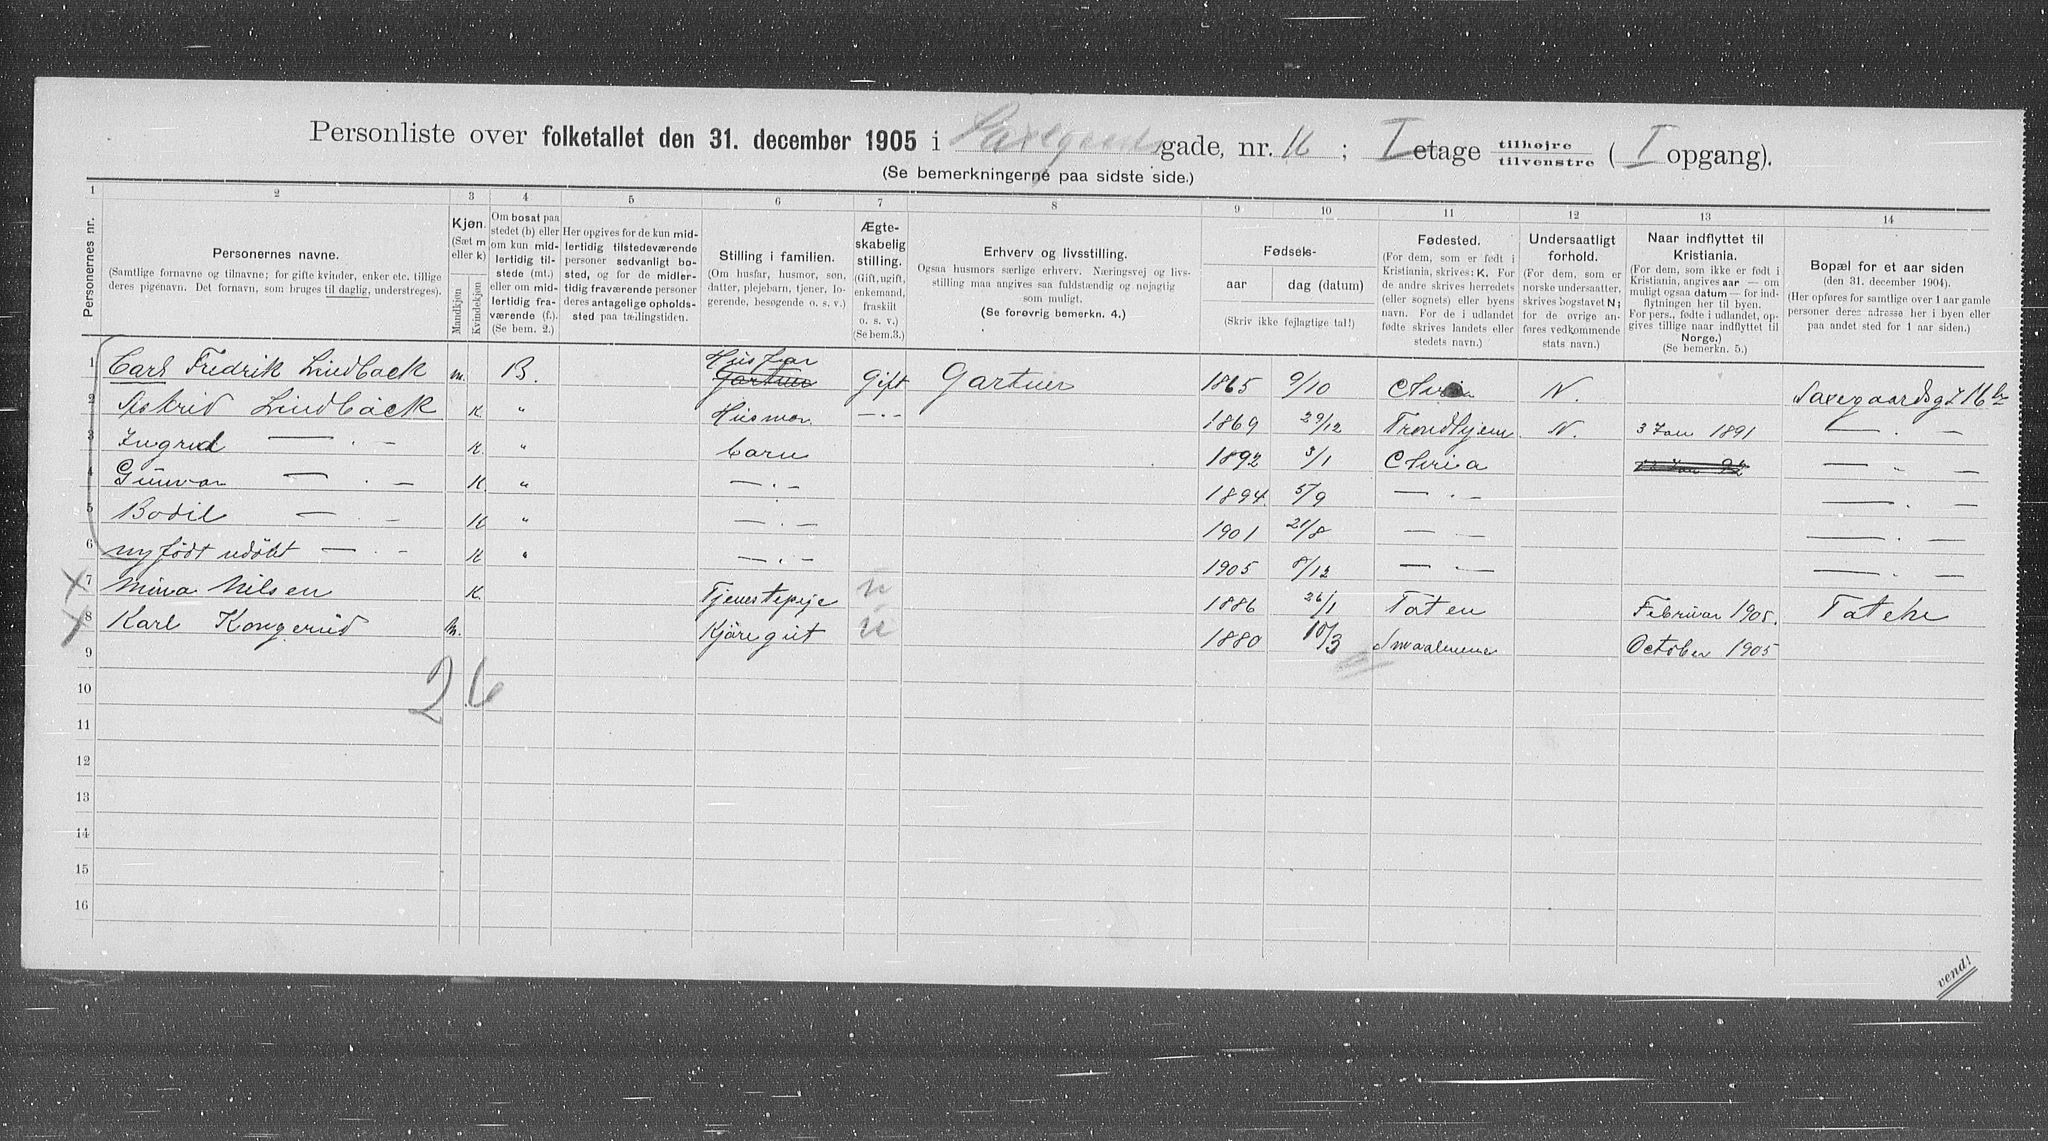 Personliste over folketallet den 31. december 1905 i Saxegaards gade, nr. 16 ; I etage tilhøjre tilvenstre ( I opgang).
(Se bemerkningerne paa sidste side.)
1 2 3 4 5 6 7 8 9 10 11 12 13 14
Personernes nr.
Personernes navne.
(Samtlige fornavne og tilnavne; for gifte kvinder, enker etc. tillige
deres pigenavn. Det fornavn, som bruges til daglig, understreges).
Kjøn.
(Sæt m
eller k)
Mandkjøn
Kvindekjøn
Om bosat paa
stedet (b) eller
om kun mid-
lertidig til-
stede (mt.)
eller om mid-
lertidig fra-
værende (f.).
(Se bem. 2.)
Her opgives for de kun mid-
lertidig tilstedeværende
personer sedvanlig bo-
sted, og for de midler-
tidig fraværende personer
deres antagelige opholds-
sted paa tællingstiden.
Stilling i familien.
(Om husfar, husmor, søn,
datter, plejebarn, tjener, lo-
gerende, besøgende o. s. v.)
Ægte-
skabelig
stilling.
(Gift, ugift,
enkemand,
fraskilt
o. s. v.)
(Se bem.3.)
Erhverv og livsstilling.
Ogsaa husmors særlige erhverv. Næringsvej og livs-
stilling maa angives saa fuldstændig og nøjagtig
som muligt.
(Se forøvrig bemerkn. 4.)
Fødsels-
aar dag (datum)
(Skriv ikke fejlagtige tal!)
Fødested.
(For dem, som er født i
Kristiania, skrives: K. For
de andre skrives herredets
(eller sognets) eller byens
navn. For de i udlandet
fødte skrives landets eller
stedets navn.)
Undersaatligt
forhold.
(For dem, som er
norske undersaatter,
skrives bogstavet N;
for de øvrige an-
føres vedkommende
stats navn.)
Naar indflyttet til
Kristiania.
(For dem, som ikke er født i
Kristiania, angives aar — om
muligt ogsaa datum — for ind-
flytningen her til byen.
For pers., fødte i udlandet, op-
gives tillige naar indflyttet til
Norge.)
(Se bemerkn. 5.)
Bopæl for et aar siden
(den 31. december 1904).
(Her opføres for samtlige over 1 aar gamle
personer deres adresse her i byen eller
paa andet sted for 1 aar siden.)
1 Carl Fredrik Lindback m. B. Husfar Gartner Gift Gartner 1865 9/10 Chria N. Saxegaardsgt 16
2 Astrid Lindback K " Husmor — " — 1869 29/12 Trondhjem N. 3 Jan 1891 — " —
3 Ingrid — " — K " Barn 1892 3/1 Chria — " —
4 Gunvor — " — K. " — " — 1894. 5/9 — " — — " —
5 Bodil — " — K " — " — 1901 21/8 — " — — " —
6 nyfødt udøbt — " — K " — " — 1905 8/12 — " — — " —
7 Mina Nilsen K. Tjenestepige u 1886 26/1 Toten Februar 1905. Toten
8 Karl Kongerud m. Kjøregut u 1880 10/3 Smaalenene October 1905
9
10
11
12
13
14
15
16
2 6
vend!